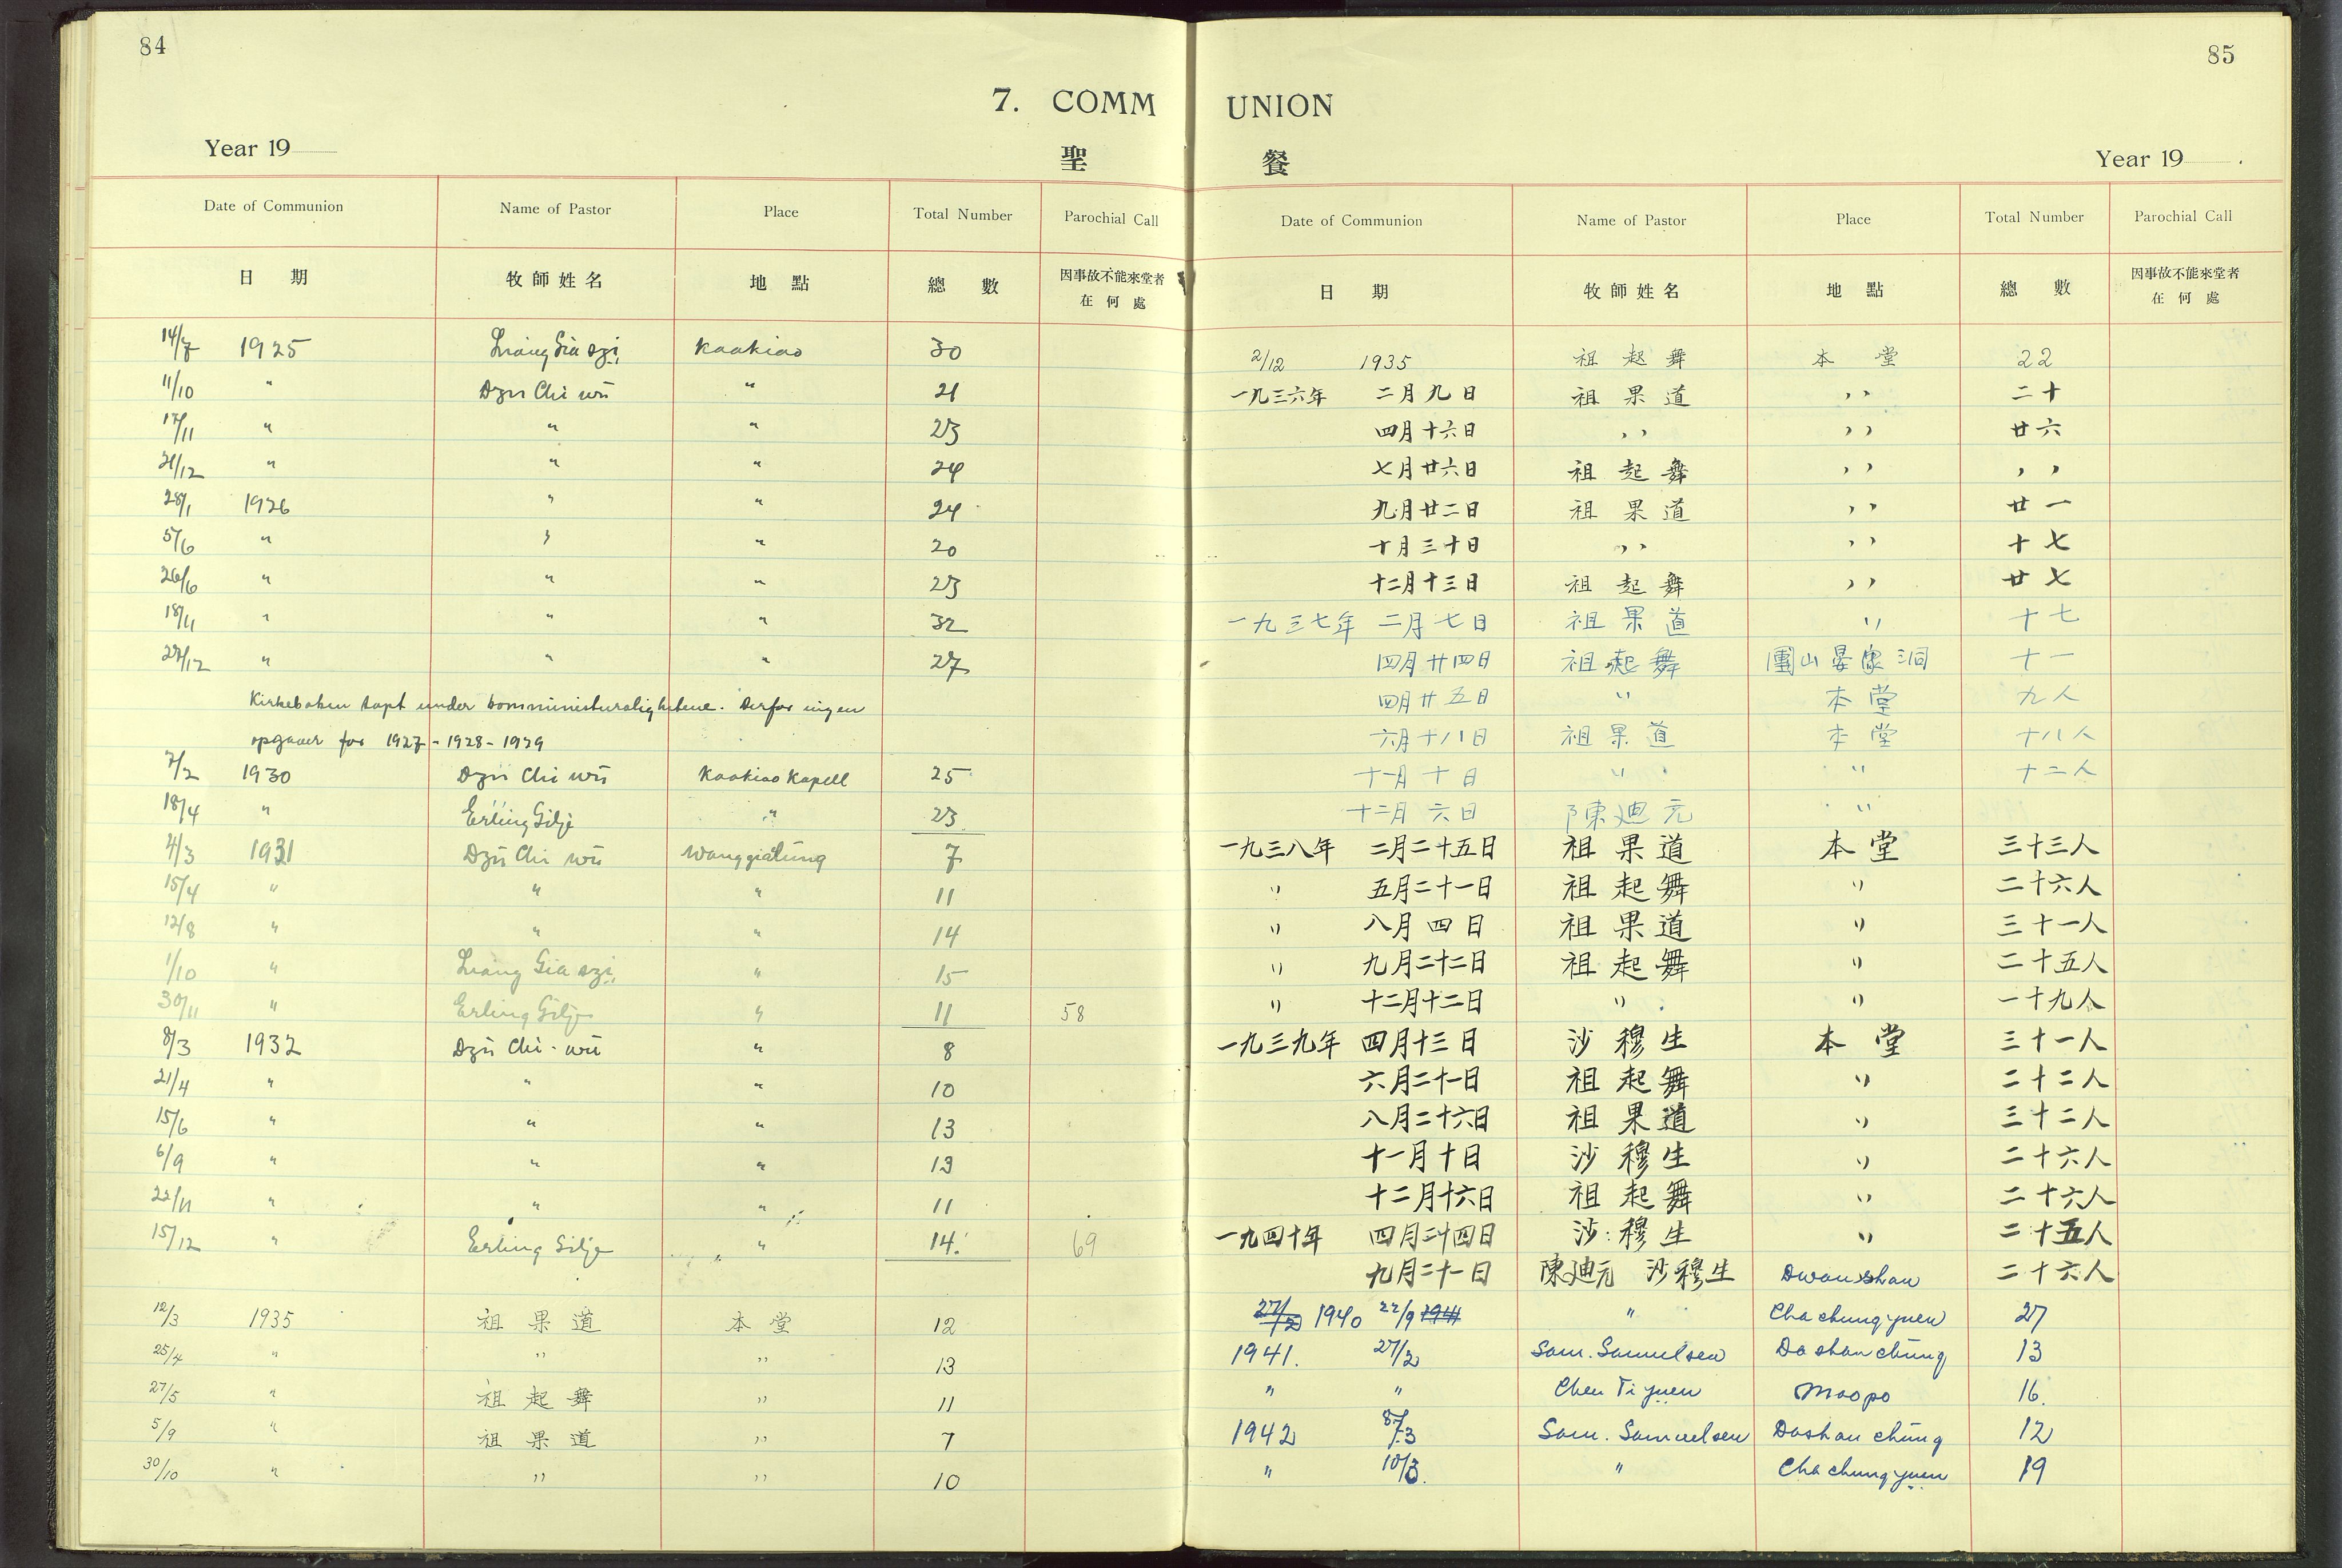 84
7. COMM
Year 19
聖
Date of Communion Name of Pastor Place Total Number Parochial Call
日 期 牧師姓名 地 點 總 數 因事故不能來堂者
在何處
14/7 1925 Liäng Gia szi Kaakiao 30
11/10 " Dzu Chi wu " 21
17/11 " " " 23
21/12 " " " 24
28/1 1926 " " 24
5/6 " " " 20
26/6 " " " 23
18/11 " " " 32
27/12 " " " 27
Kirkeboken tapt under kommunisturolighetene. Derfor ingen
opgaver for 1927 - 1928 - 1929
7/2 1930 Dzu Chi wu Kaakiao Kapell 25
18/4 " Erling Gilje " 23
4/3 1931 Dzu Chi wu Wanggiatung 7
15/4 " " " 11
12/8 " " " 14
1/10 " Liang Gia szi " 15
30/11 " Erling Gilje " 11 58
8/3 1932 Dzu Chi-wu " 8
21/4 " " " 10
15/6 " " " 13
6/9 " " " 13
22/11 " " " 11
15/12 " Erling Gilje " 14. 69
12/3 1935 祖果道 本堂 12
25/4 " " " 13
27/5 " 祖起舞 " 11
5/9 " 祖果道 " 7
30/10 " " " 10
85
UNION
餐
Year 19
Date of Communion Name of Pastor Place Total Number Parochial Call
日 期 牧師姓名 地 點 總 數 因事故不能來堂者
在何處
2/12 1935 祖起舞 本堂 22
一九三六年 二月九日 祖果道 " 二十
四月十六日 " " 廿六
七月廿六日 祖起舞 " "
九月廿二日 祖果道 " 廿一
十月三十日 " " 十七
十二月十三日 祖起舞 " 廿七
一九三七年 二月七日 祖果道 " 十七
四月廿四日 祖起舞 團山晏家洞 十一
四月廿五日 " 本堂 九人
六月十八日 祖果道 本堂 十八人
十一月十日 " " 十二人
十二月六日 陳廸元 "
一九三八年 二月二十五日 祖果道 本堂 三十三人
" 五月二十一日 祖起舞 " 二十六人
" 八月四日 祖果道 " 三十一人
" 九月二十二日 祖起舞 " 二十五人
" 十二月十二日 " " 一十九人
一九三九年 四月十三日 沙穆生 本堂 三十一人
六月二十一日 祖起舞 " 二十二人
八月二十六日 祖果道 " 三十二人
十一月十日 沙穆生 " 二十六人
十二月十六日 祖起舞 " 二十六人
一九四十年 四月二十四日 沙穆生 " 二十五人
九月二十一日 陳廸元 沙穆生 Dwanshan 二十六人
27/2 1940 22/9 1941 " Chachungyuen 27
1941. 27/2 Sam. Samuelsen Dashanchung 13
" " Chen Ti yuen Maopo 16.
1942 8/3 Sam. Samuelsen Dashan chung 12
" 10/3. " Chachungyuen 19